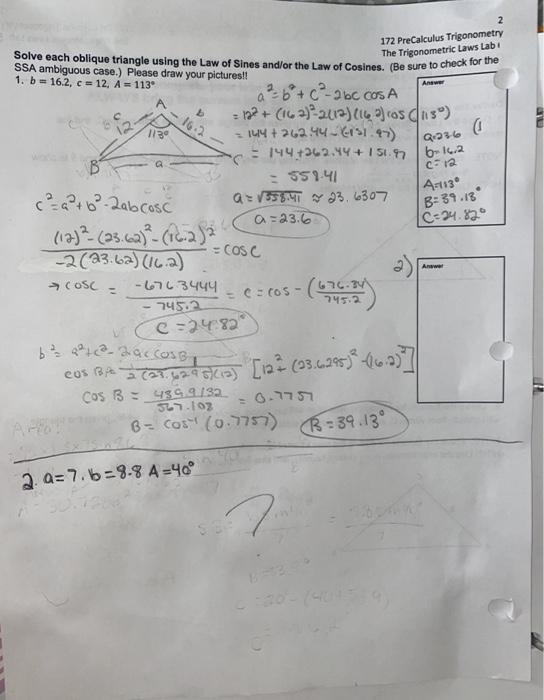 2
172 PreCalculus Trigonometry
The Trigonometric Laws Lab
Solve each oblique triangle using the Law of Sines and/or the Law of Cosines. (Be sure to check for the
SSA ambiguous case.) Please draw your pictures!!
1. b = 16.2, c = 12, A = 113°
Answer
a=23.6
b=16.2
c=12
A=113°
B=39.13°
C=24.82°
(1
A
c
12
b
16.2
113°
B
a
C
a²=b²+c²-2bc cosA
= 12²+(16.2)²-2(12)(16.2)cos(113°)
= 144+262.44-(-151.97)
= 144+262.44+151.97
= 558.41
a=√558.41 ≈ 23.6307
a=23.6
c²=a²+b²-2abcosC
(12)²-(23.62)²-(16.2)²
-2(23.62)(16.2)
=cosC
→ cosC = -676.3444 = c=cos-(676.34
-745.2
745.2)
C=24.82°
2)
Answer
b²= a²+c²-2accosB
cos B= 1
2(23.6295)(12)
[12²+(23.6295)²-(16.2)²]
cos B = 439.9132 = 0.7757
567.108
B= cos⁻¹(0.7757)
B=39.13°
2. a=7. b=8.8 A=40°
?